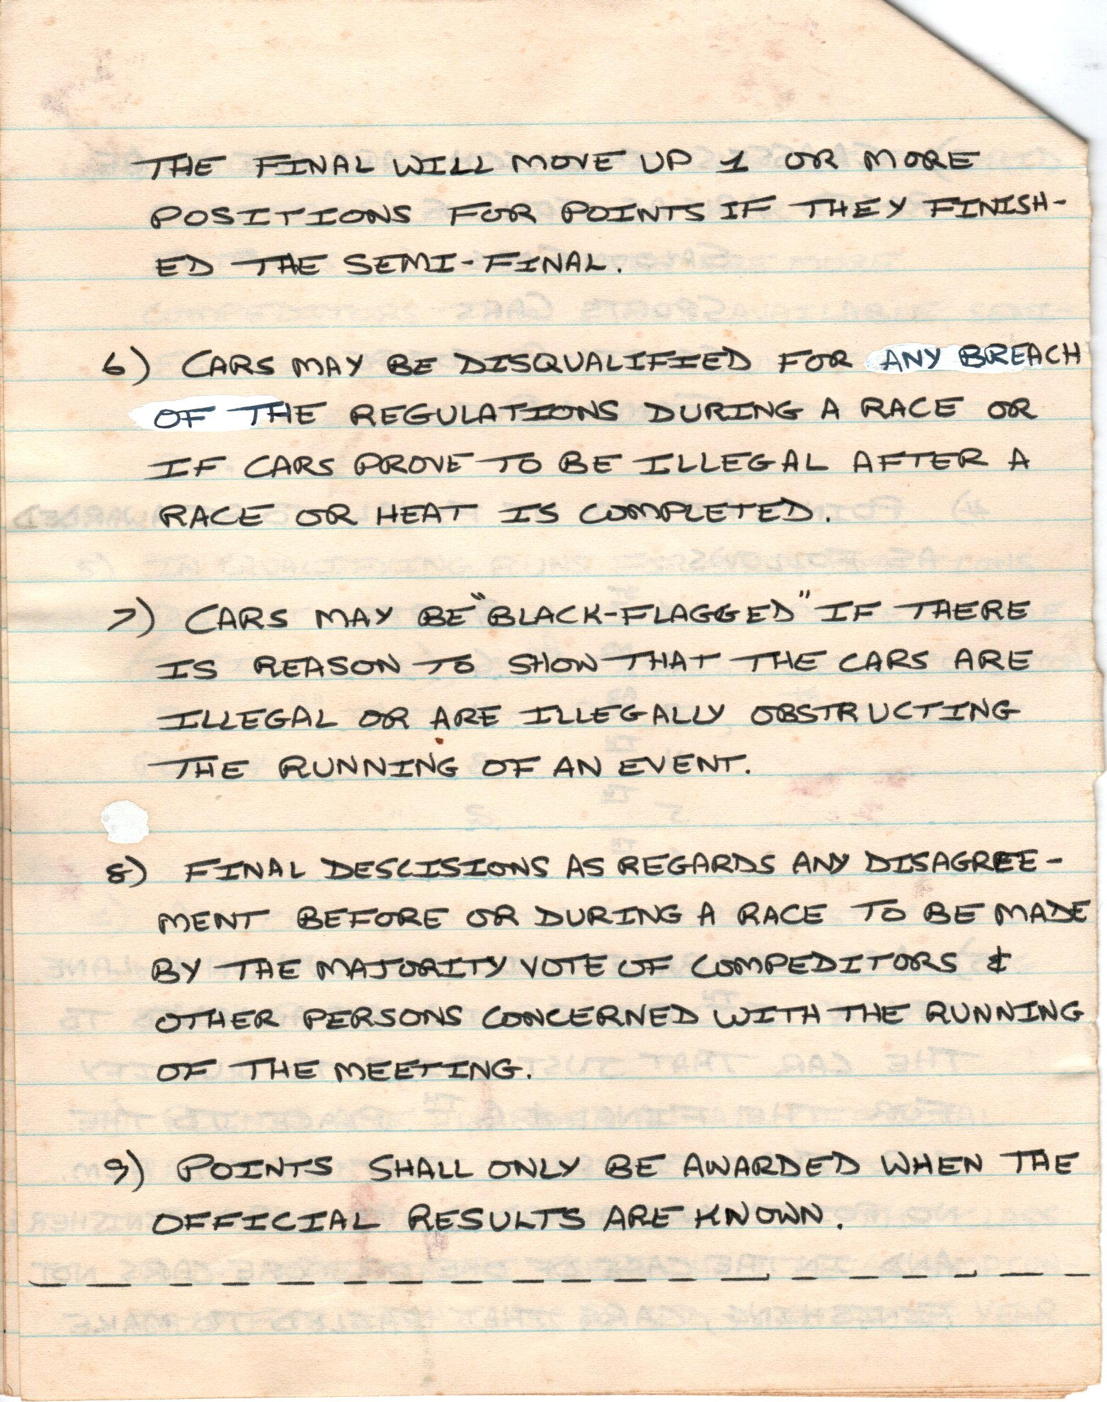 THE FINAL WILL MOVE UP 1 OR MORE
POSITIONS FOR POINTS IF THEY FINISH-
ED THE SEMI-FINAL.
6) CARS MAY BE DISQUALIFIED FOR ANY BREACH
OF THE REGULATIONS DURING A RACE OR
IF CARS PROVE TO BE ILLEGAL AFTER A
RACE OR HEAT IS COMPLETED.
7) CARS MAY BE "BLACK-FLAGGED" IF THERE
IS REASON TO SHOW THAT THE CARS ARE
ILLEGAL OR ARE ILLEGALLY OBSTRUCTING
THE RUNNING OF AN EVENT.
8) FINAL DESCISIONS AS REGARDS ANY DISAGREE-
MENT BEFORE OR DURING A RACE TO BE MADE
BY THE MAJORITY VOTE OF COMPEDITORS &
OTHER PERSONS CONCERNED WITH THE RUNNING
OF THE MEETING.
9) POINTS SHALL ONLY BE AWARDED WHEN THE
OFFICIAL RESULTS ARE KNOWN.